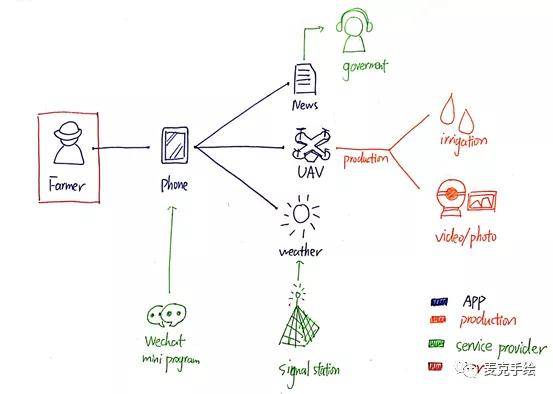 goverment
News
Farmer
phone
UAV
production
irrigation
weather
video/photo
Wechat
mini program
Signal station
APP
production
service provider
麦克手绘